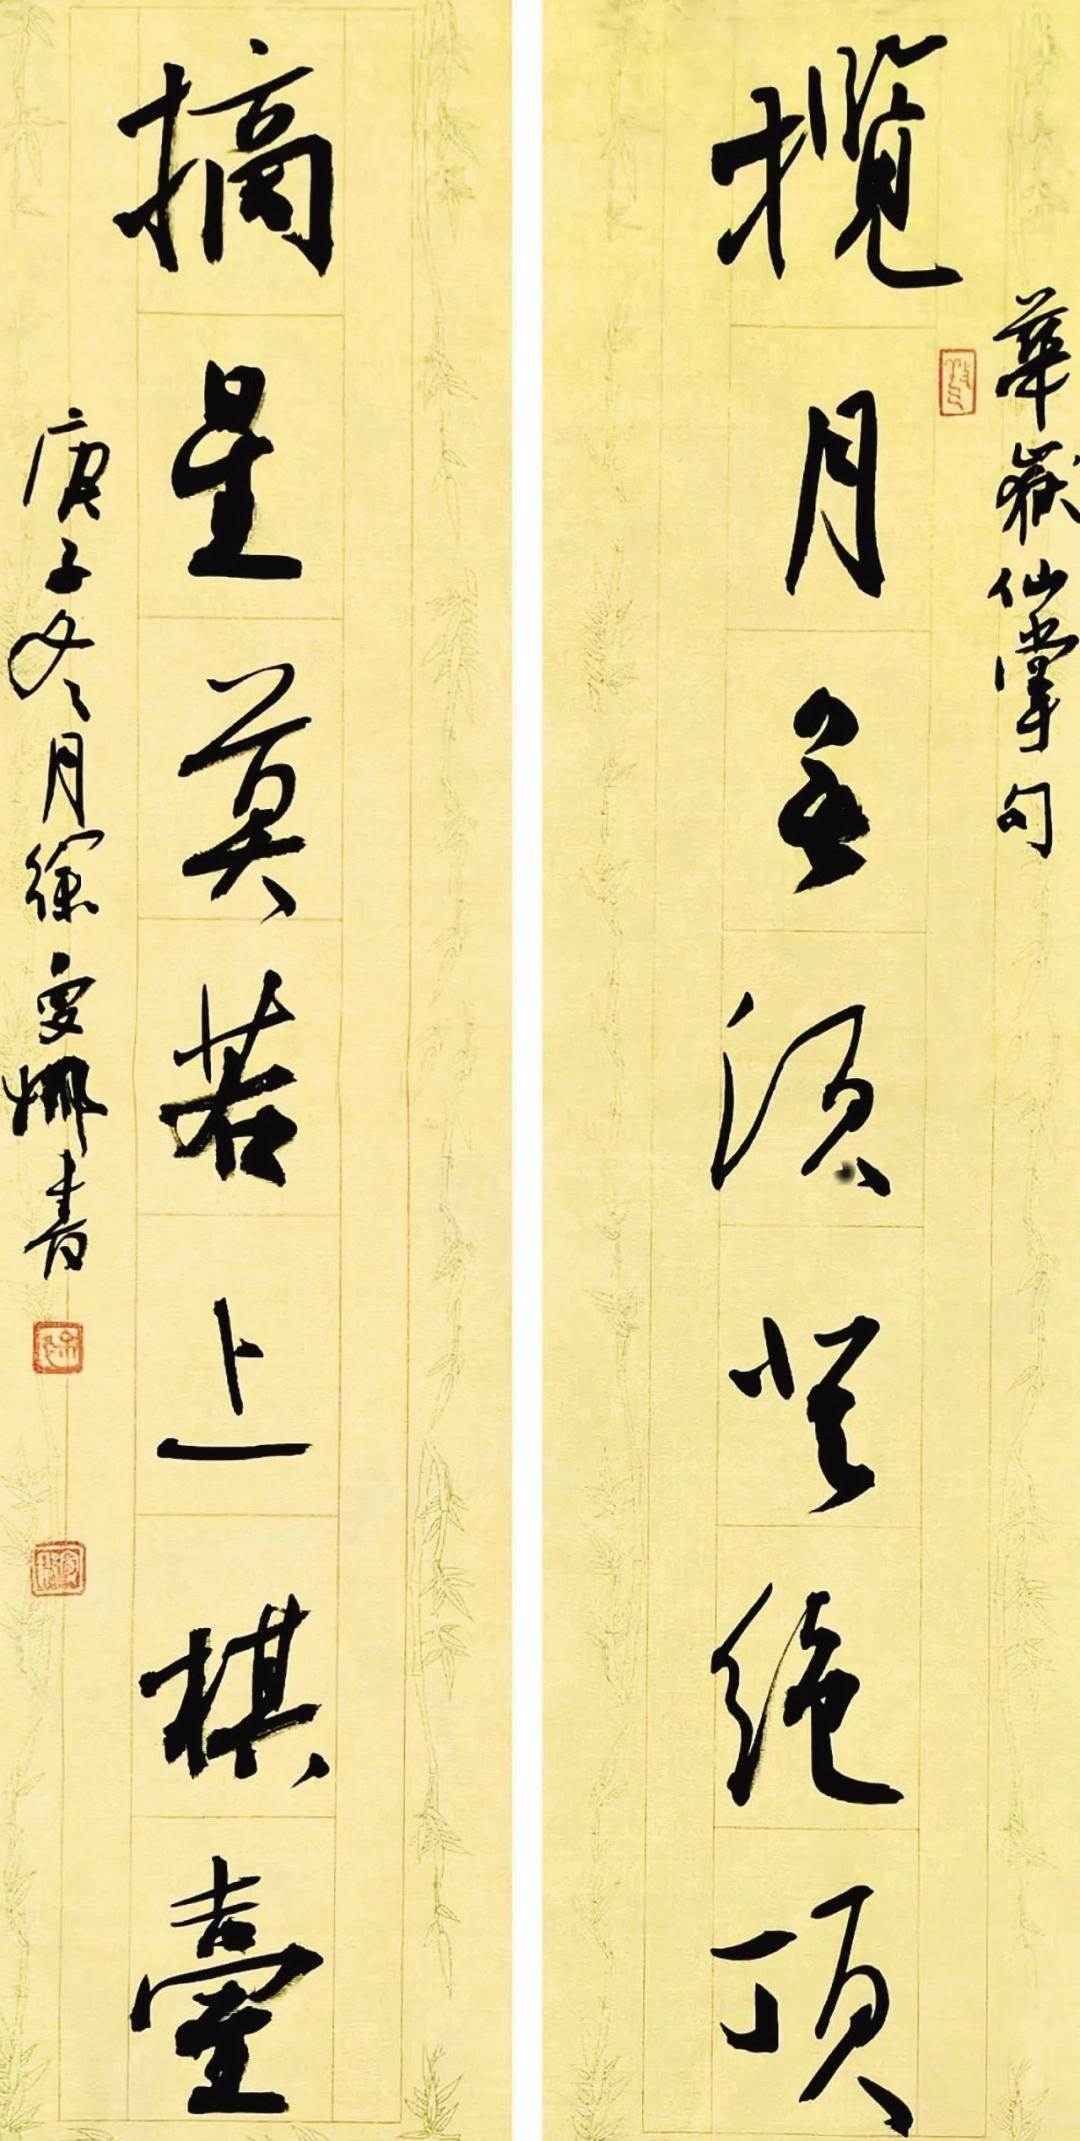 華嶽仙掌句
攬月無須登絕頂
摘星莫若上棋臺
庚子冬月徐雯娜書